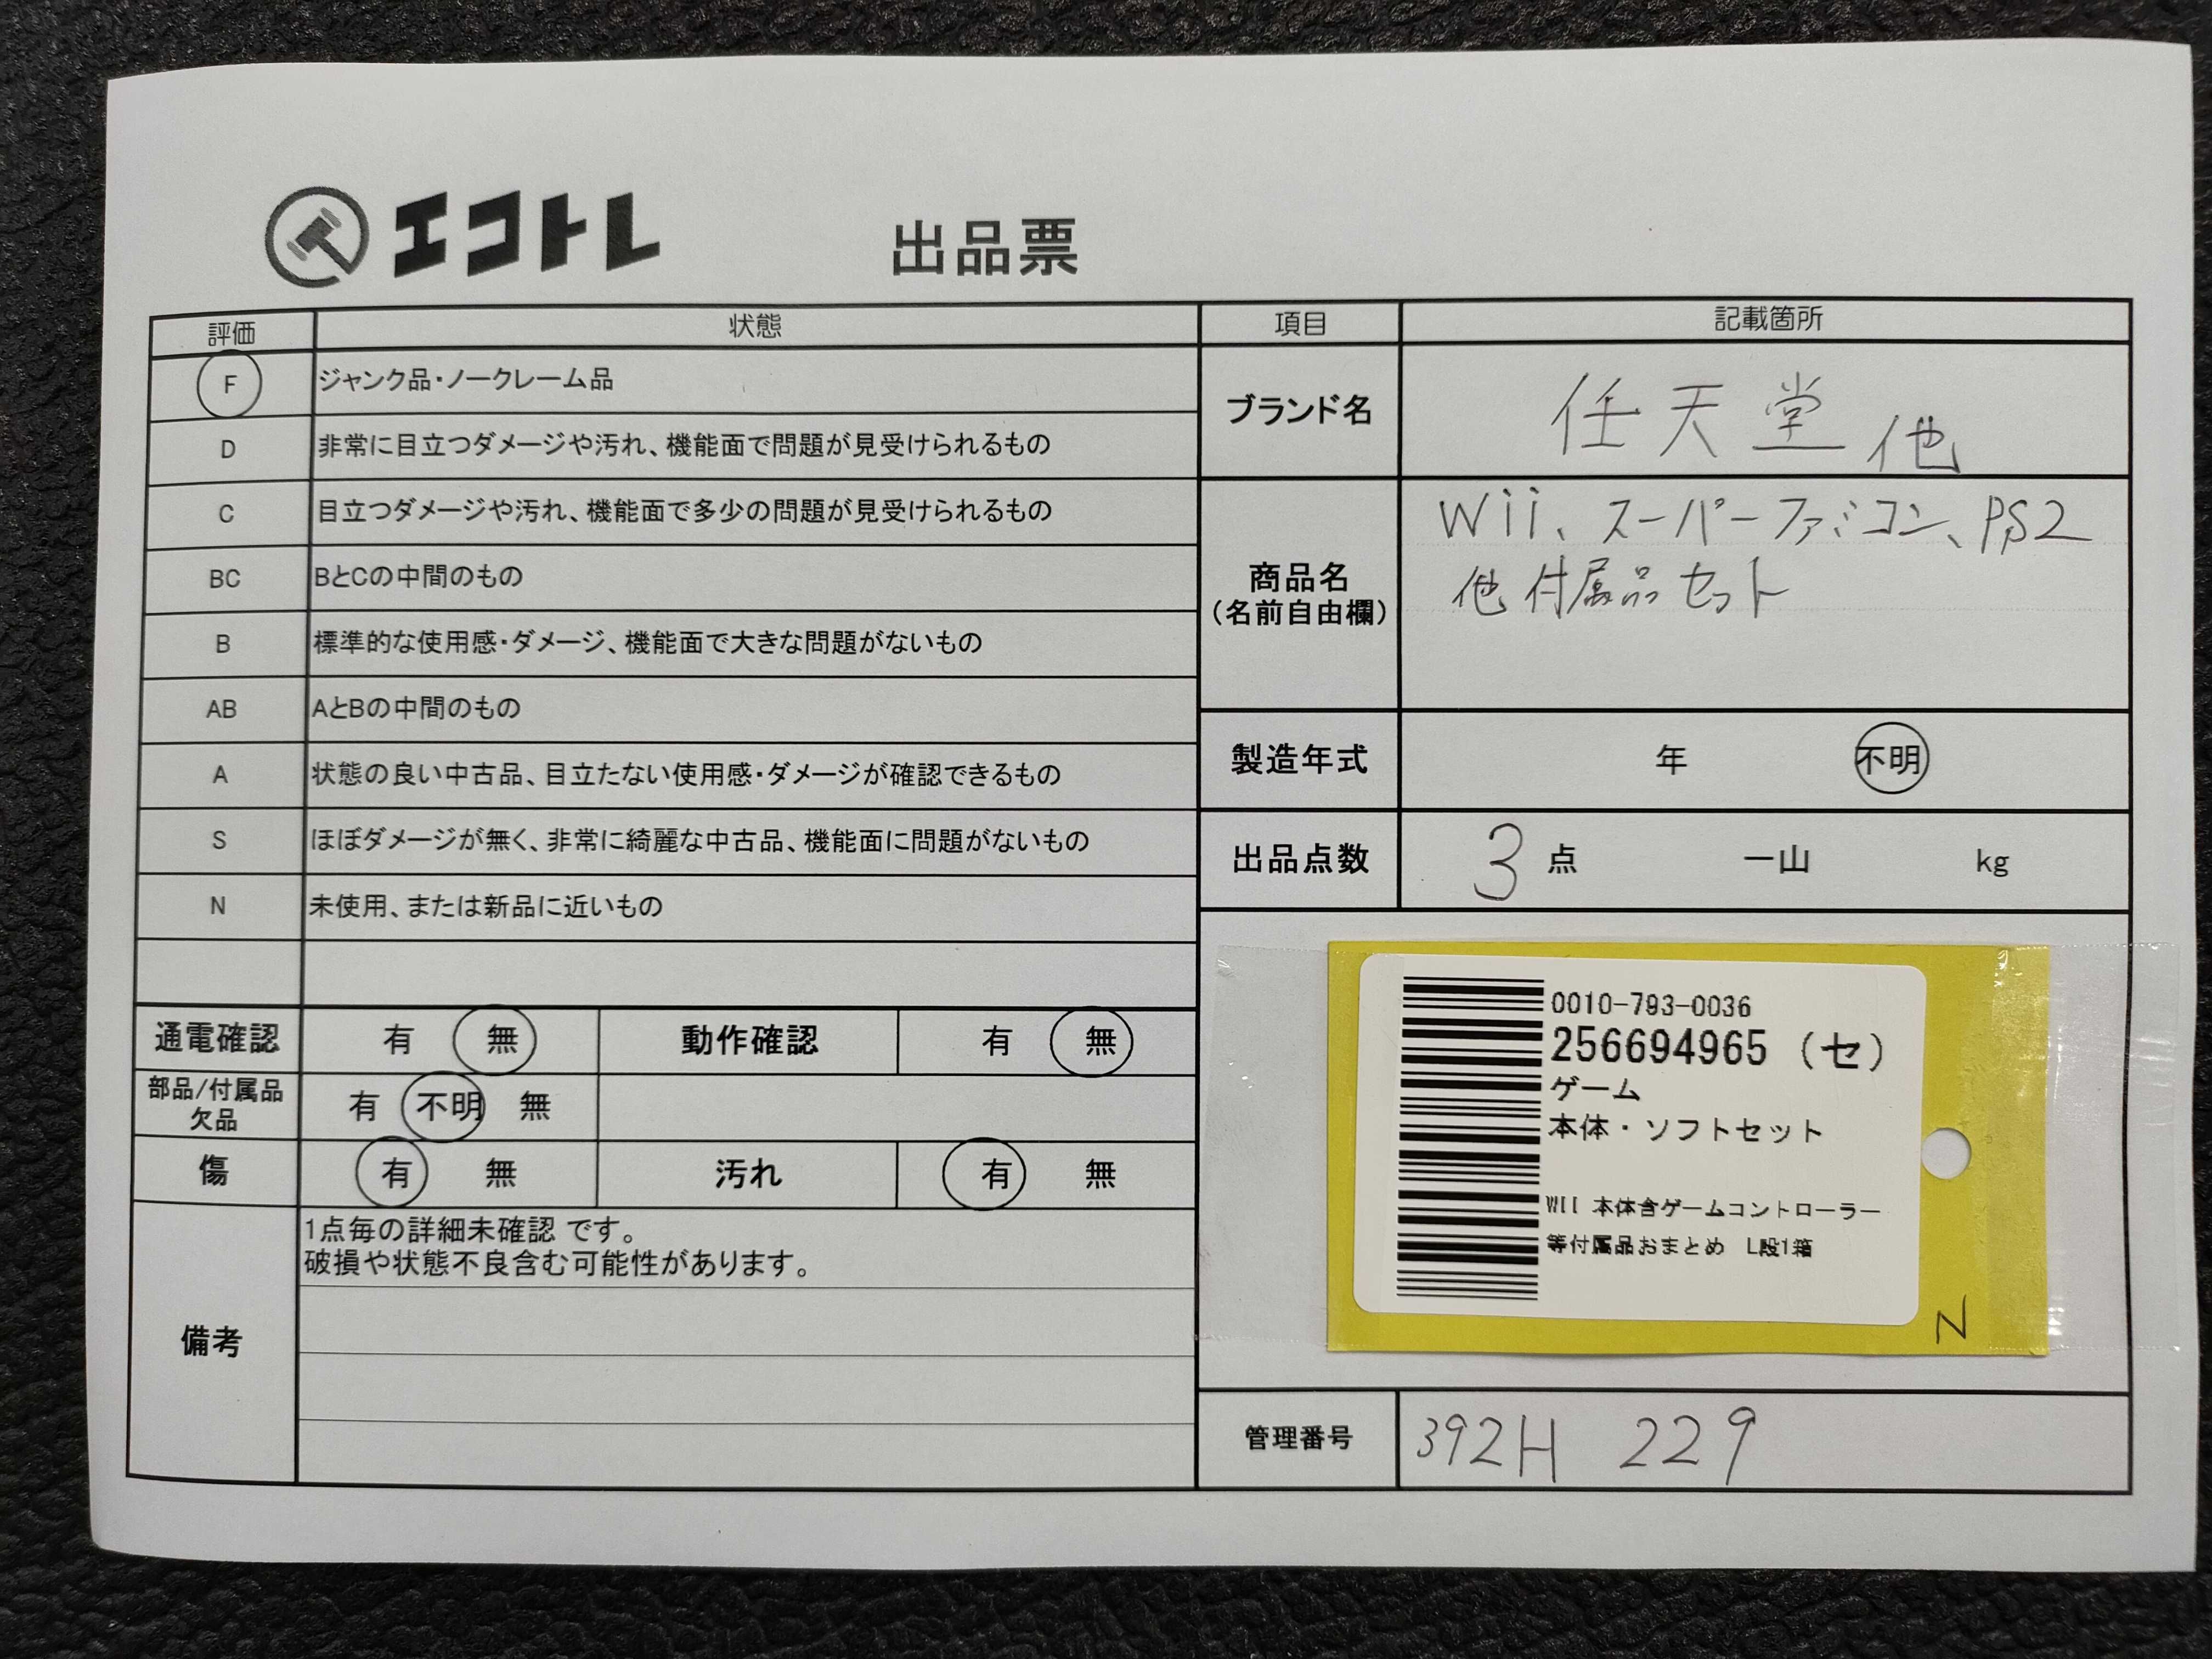 エコトレ 出品票
評価 状態
F ジャンク品・ノークレーム品
D 非常に目立つダメージや汚れ、機能面で問題が見受けられるもの
C 目立つダメージや汚れ、機能面で多少の問題が見受けられるもの
BC BとCの中間のもの
B 標準的な使用感・ダメージ、機能面で大きな問題がないもの
AB AとBの中間のもの
A 状態の良い中古品、目立たない使用感・ダメージが確認できるもの
S ほぼダメージが無く、非常に綺麗な中古品、機能面に問題がないもの
N 未使用、または新品に近いもの
通電確認 有 無 動作確認 有 無
部品/付属品
欠品
有 不明 無
傷 有 無 汚れ 有 無
備考
1点毎の詳細未確認 です。
破損や状態不良含む可能性があります。
項目 記載箇所
ブランド名 任天堂 他
商品名
(名前自由欄)
Wii、スーパーファミコン、PS2
他 付属品セット
製造年式 年 不明
出品点数 3 点 一山 kg
0010-793-0036
256694965 (セ)
ゲーム
本体・ソフトセット
WII 本体含ゲームコントローラー
等付属品おまとめ L段1箱
N
管理番号 392H 229